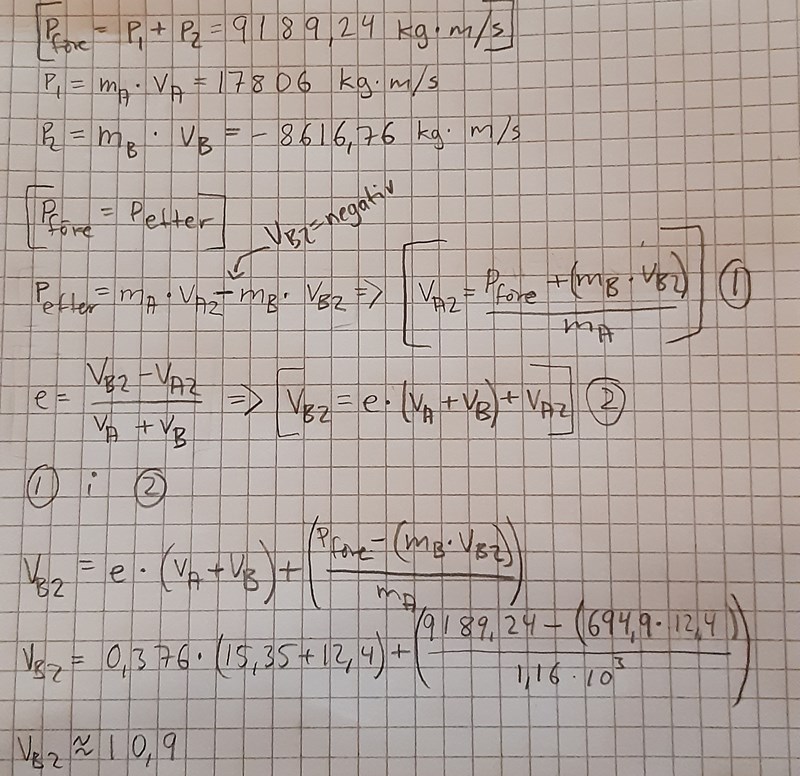 [P_före = P₁ + P₂ = 9189,24 kg·m/s]
P₁ = m_A · V_A = 17806 kg·m/s
P₂ = m_B · V_B = -8616,76 kg·m/s
[P_före = P_efter]
V_B2 = negativ
P_efter = m_A · V_A2 - m_B · V_B2 => [V_A2 = (P_före + (m_B · V_B2)) / m_A] ①
e = (V_B2 - V_A2) / (V_A + V_B) => [V_B2 = e · (V_A + V_B) + V_A2] ②
① i ②
V_B2 = e · (V_A + V_B) + ((P_före - (m_B · V_B2)) / m_A)
V_B2 = 0,376 · (15,35 + 12,4) + ((9189,24 - (694,9 · 12,4)) / 1,16 · 10³)
V_B2 ≈ 10,9